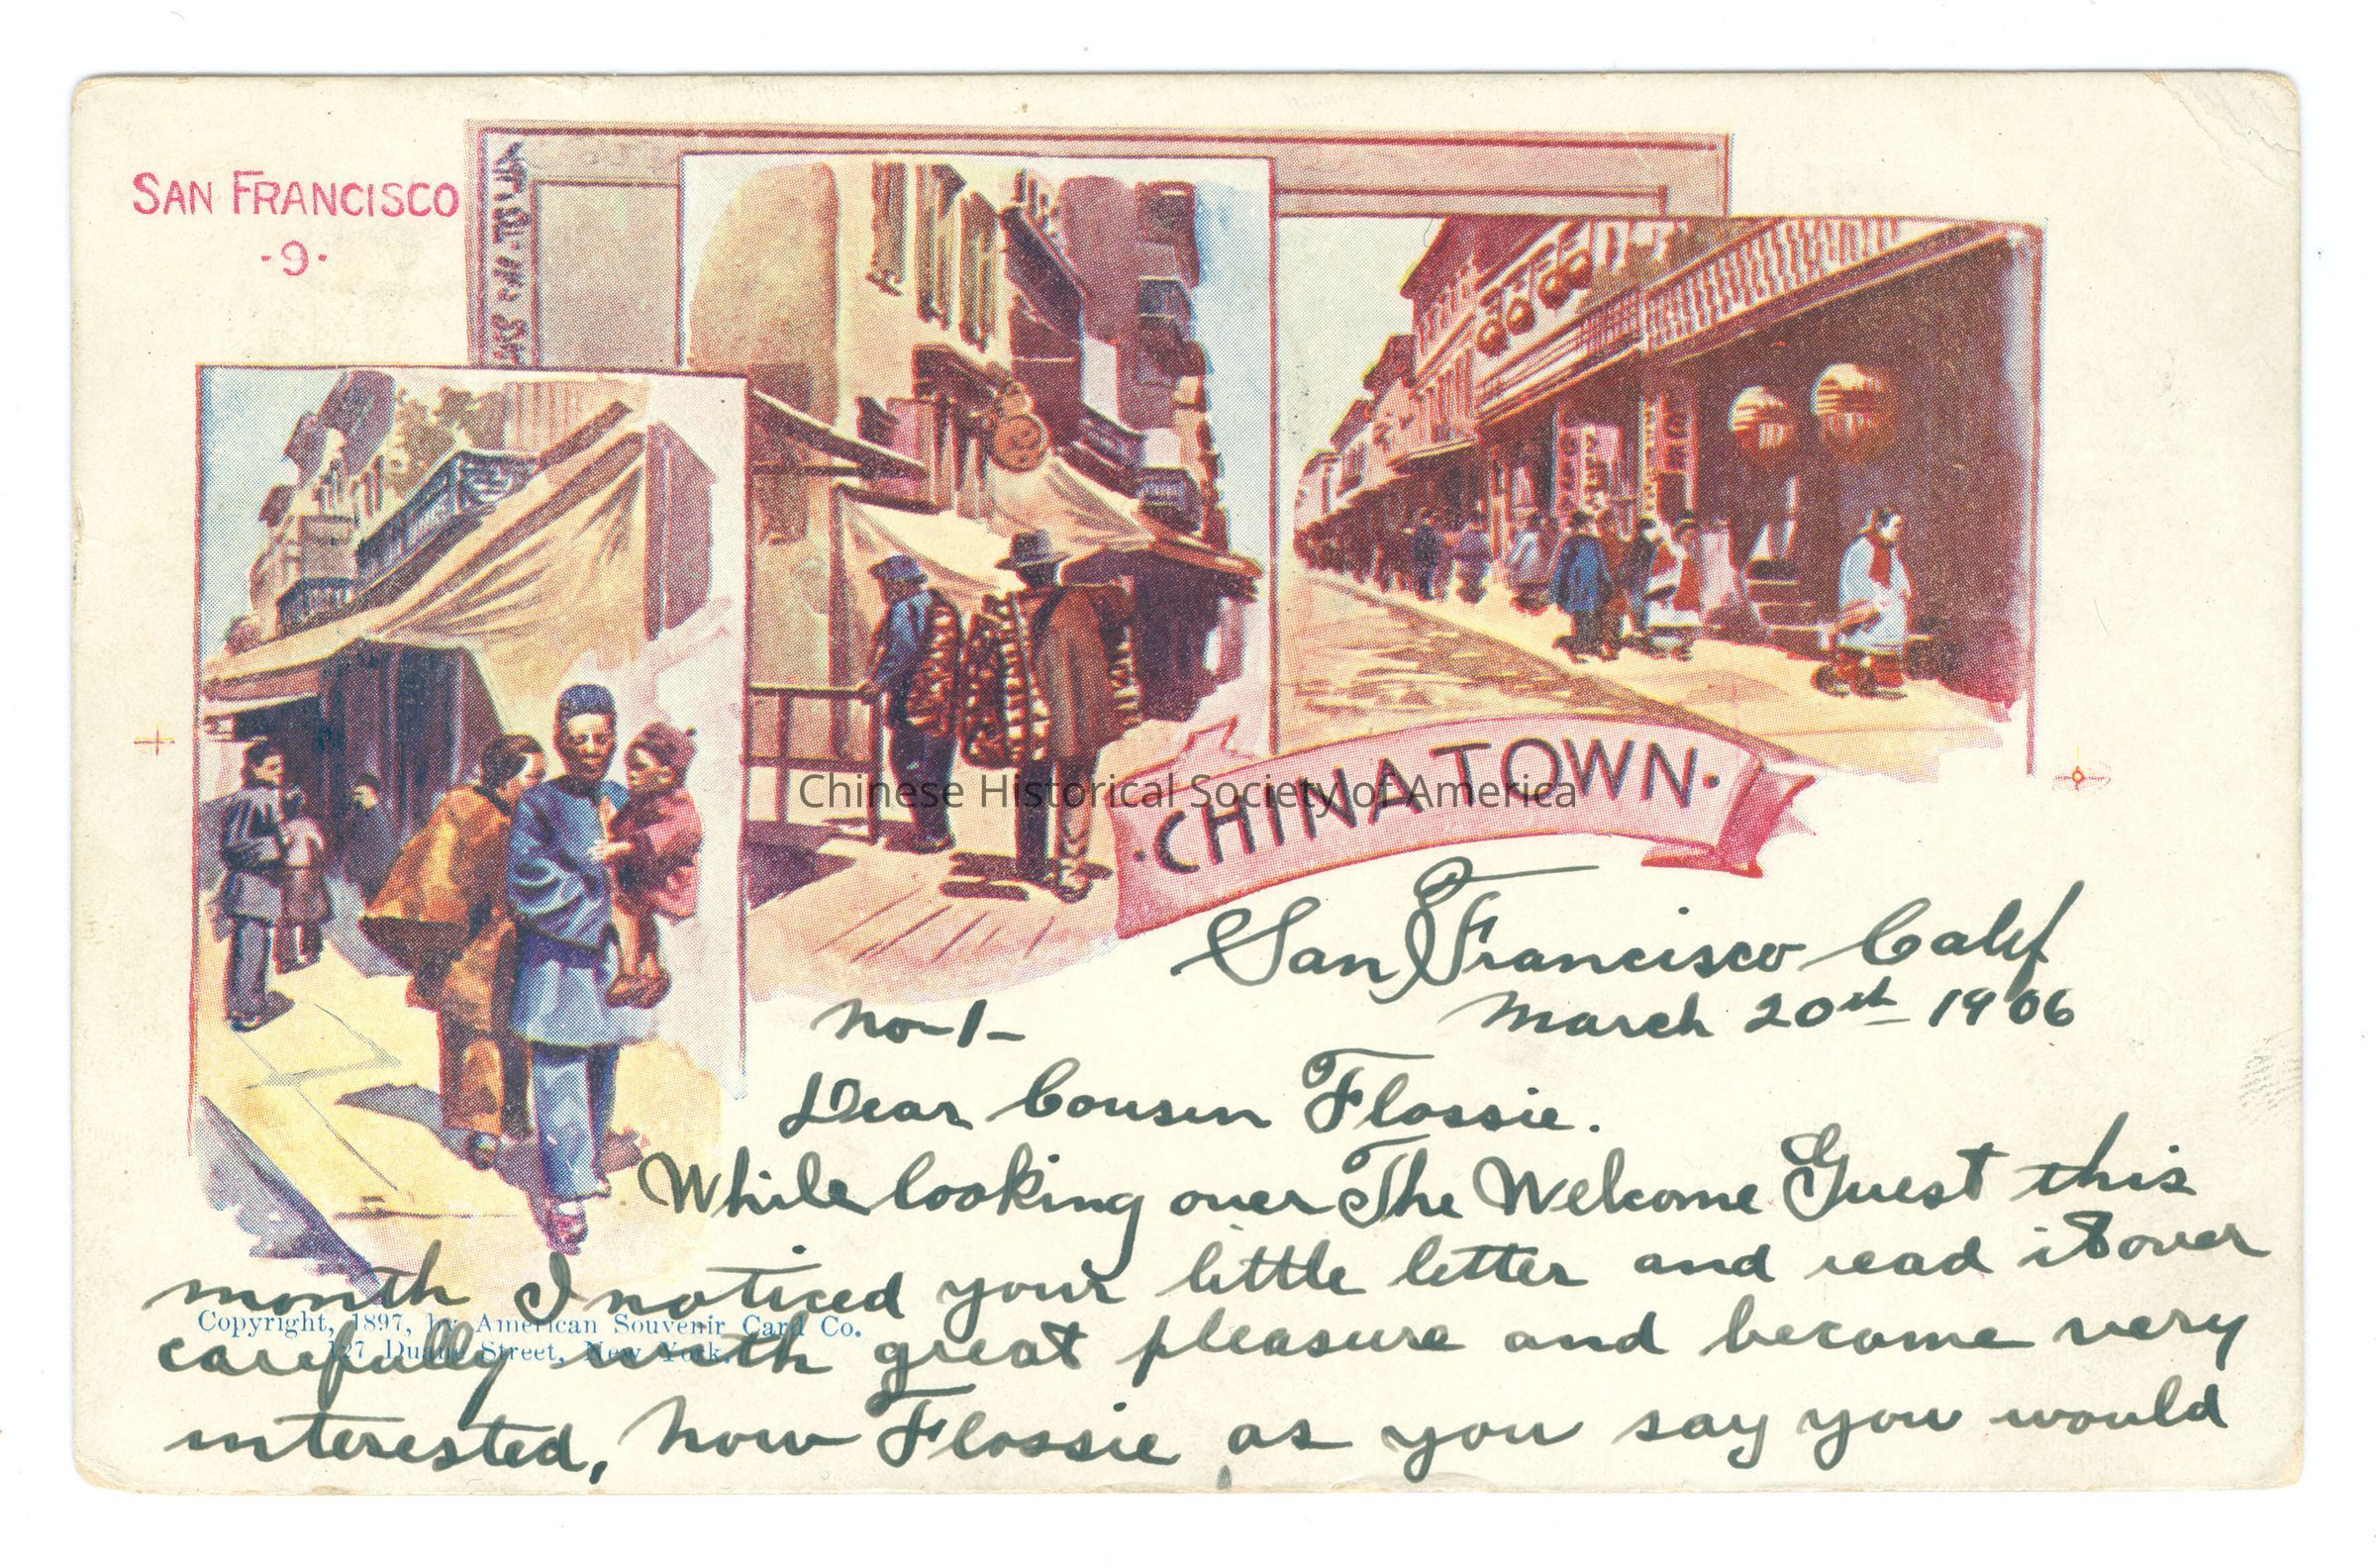 SAN FRANCISCO
-9-
·CHINATOWN·
Chinese Historical Society of America
San Francisco Calif
No-1- March 20th 1906
Dear Cousin Flossie.
While looking over The Welcome Guest this
month I noticed your little letter and read it over
Copyright, 1897, by American Souvenir Card Co.
127 Duane Street, New York.
carefully with great pleasure and become very
interested, now Flossie as you say you would